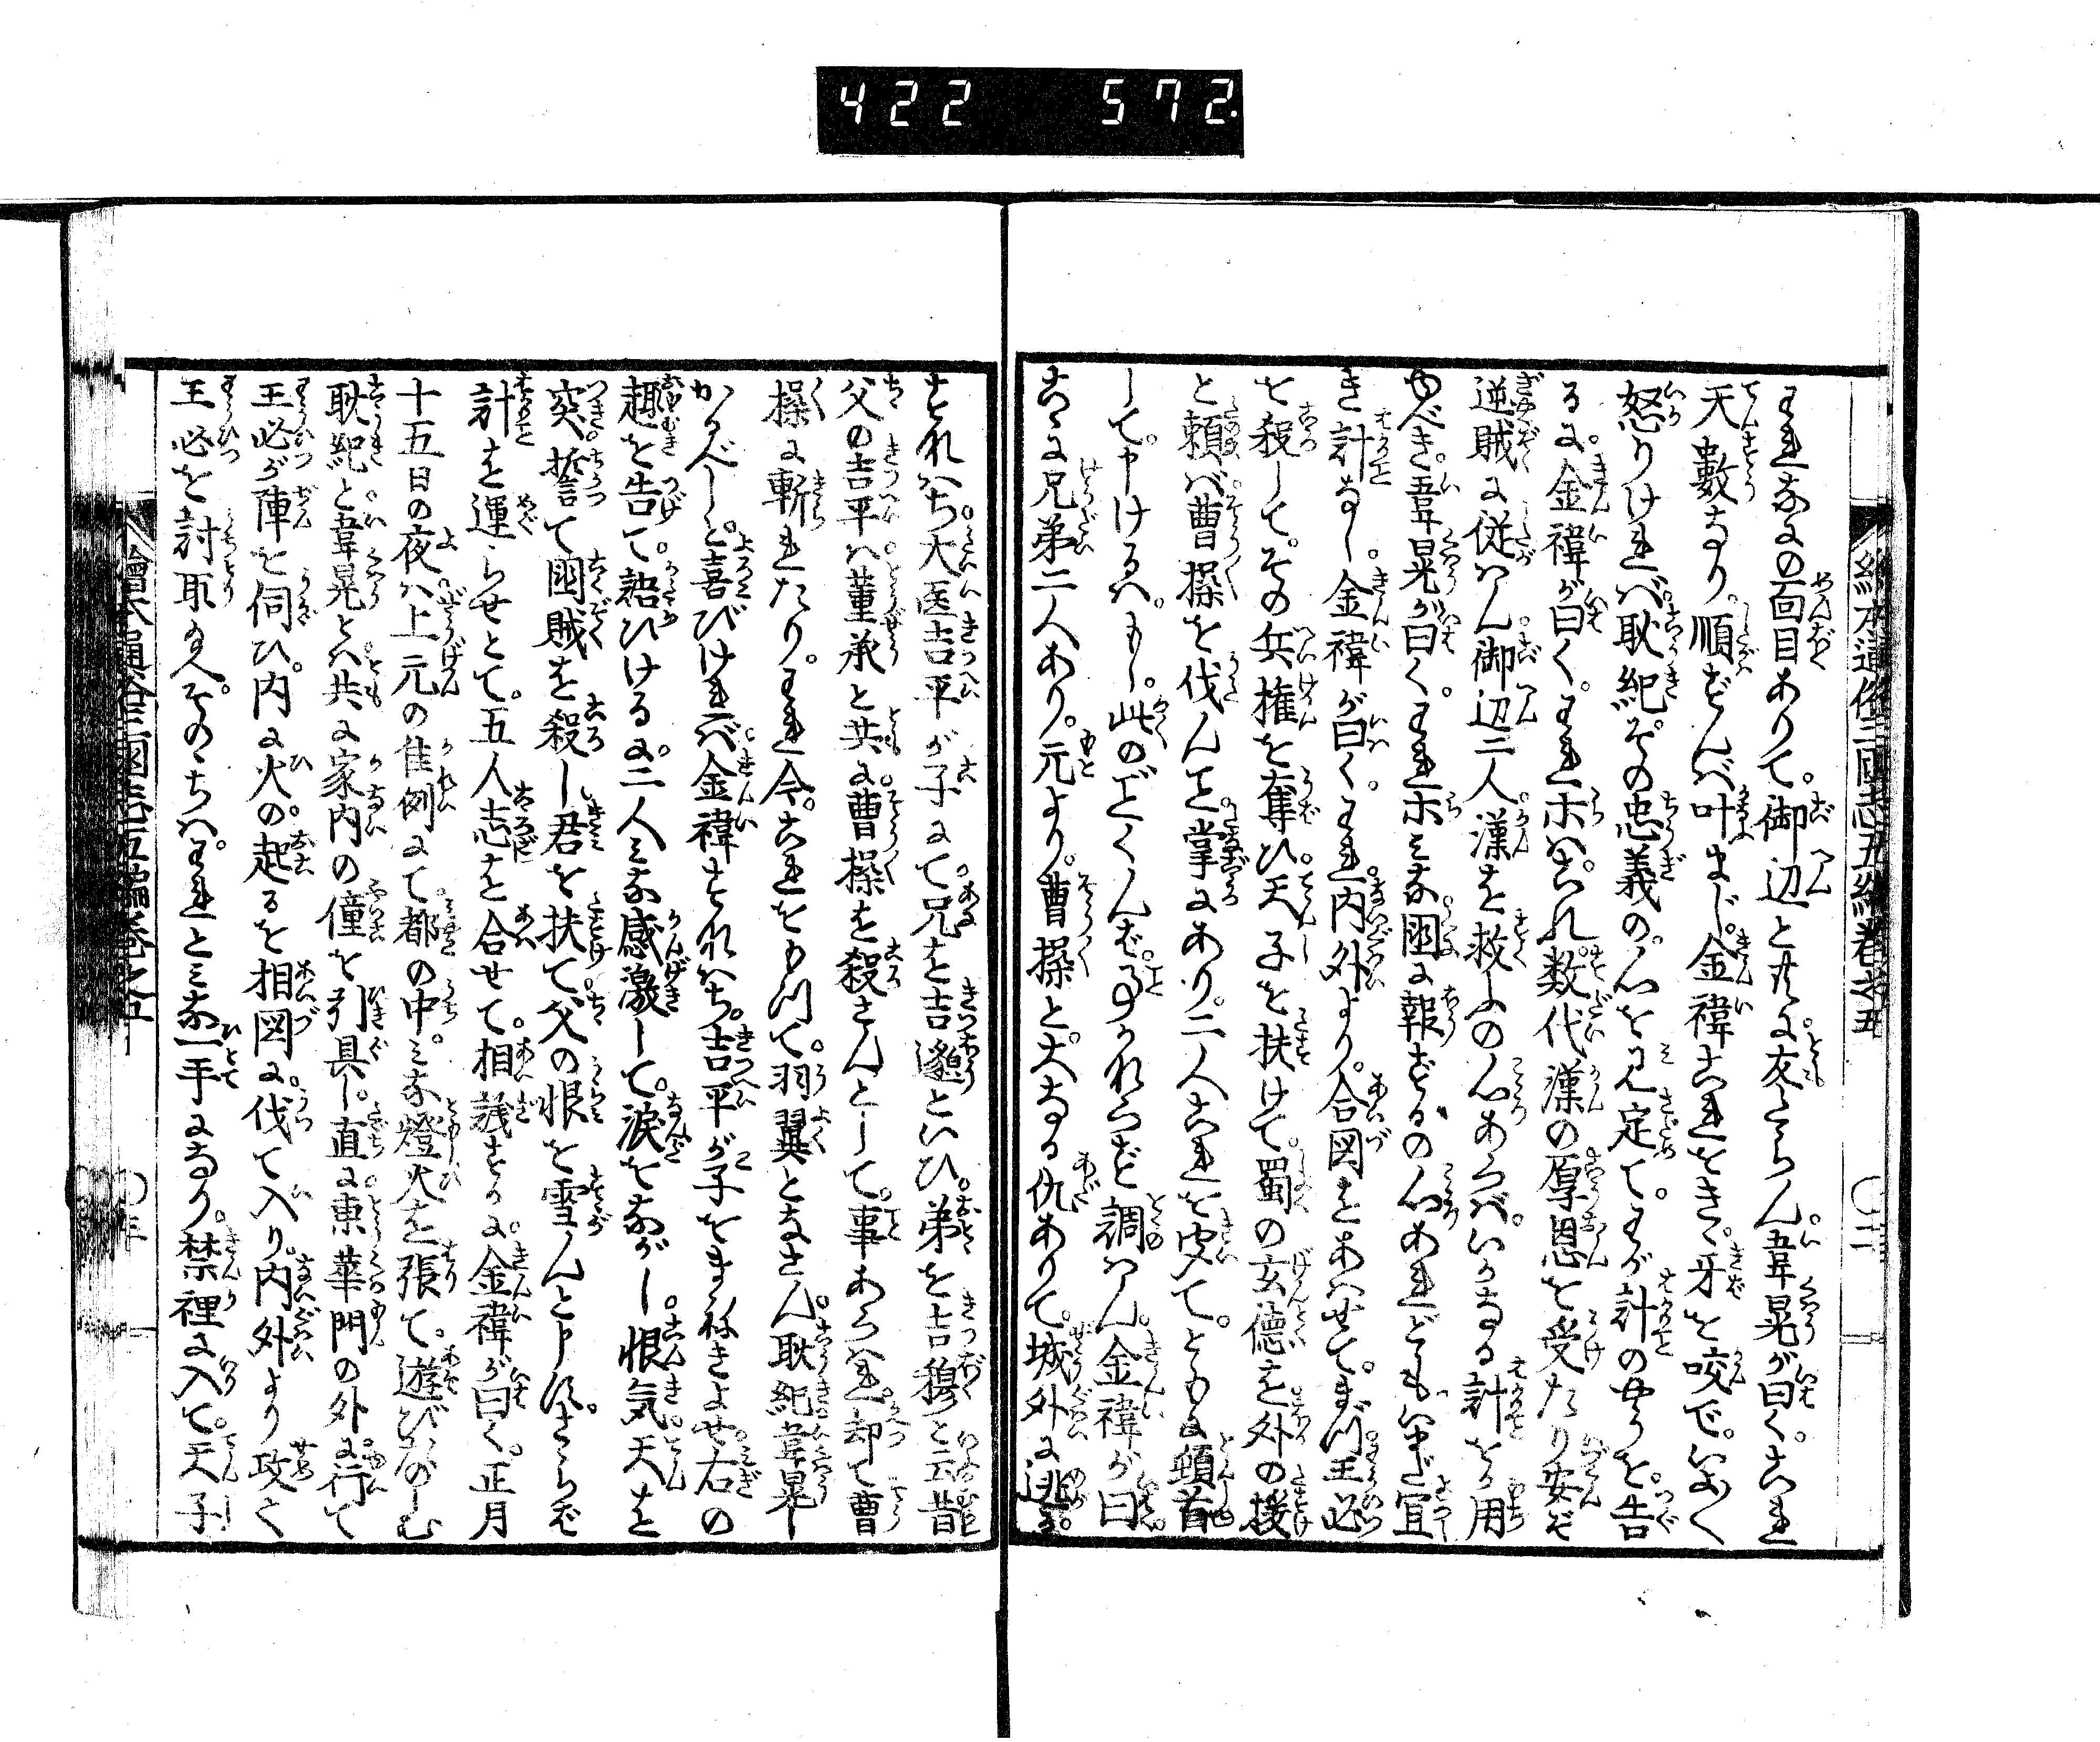 422 572.
繪本通俗三國志五編巻之五
われなにの面目ありて。御辺と共に友とならん。韋晃が曰く。これ
天數なり。順ぜずんば叶まじ。金褘これをきゝ牙を咬で。いよ〱
怒りければ。耿紀その忠義の心を見定て。わが計のやうを。告
るに。金褘が曰く。われホはこれ。数代漢の厚恩を受たり安ぞ
逆賊に従はん。御辺二人。漢を救ふの心あらば。いかなる計をか用
ゆべき。韋晃が曰く。われホみな國に報ずるの心あれども。いまだ宜
き計なし。金褘が曰く。われ。内外より。合図をあはせて。まづ王必
を殺して。その兵権を奪ひ。天子を扶けて。蜀の玄德を外の援
と頼ば。曹操を伐んこと掌にあり。二人これを聞て。ともに頓首
して。申けるは。もし。此のごとくんば。事かならず調はん。金褘が曰
こゝに兄弟二人あり。元より。曹操と。大なる仇ありて。城外に逃る。
これは。すなはち。大医吉平が子にて。兄を吉邈といひ。弟を吉穆と云昔
父の吉平は。董承と共に。曹操を殺さんとして。事あらはれ。却て曹
操に斬れたり。われ今。これをもつて。羽翼となさん。耿紀韋晃
しかるべしと。喜びければ。金褘すなはち。吉平が子をまねきよせ。右の
趣を告て。語ひけるに。二人みな感激して。涙をながし。恨気。天を
突。誓て國賊を殺し。君を扶て。父の恨を雪んと申す。さらば
計を運らせとて。五人志を合せて。相議するに。金褘が曰く。正月
十五日の夜は。上元の佳例にて。都の中。みな燈火を張て。遊びたのしむ
耿紀と韋晃とは。共に家内の僮を引具し。直に。東華門の外に行て
王必が陣を伺ひ。内に火の。起るを相図に。伐て入り。内外より攻て
王必を討取たまへ。そのゝちは。われとみな一手になり。禁裡に入て。天子
繪本通俗三國志五編巻之五